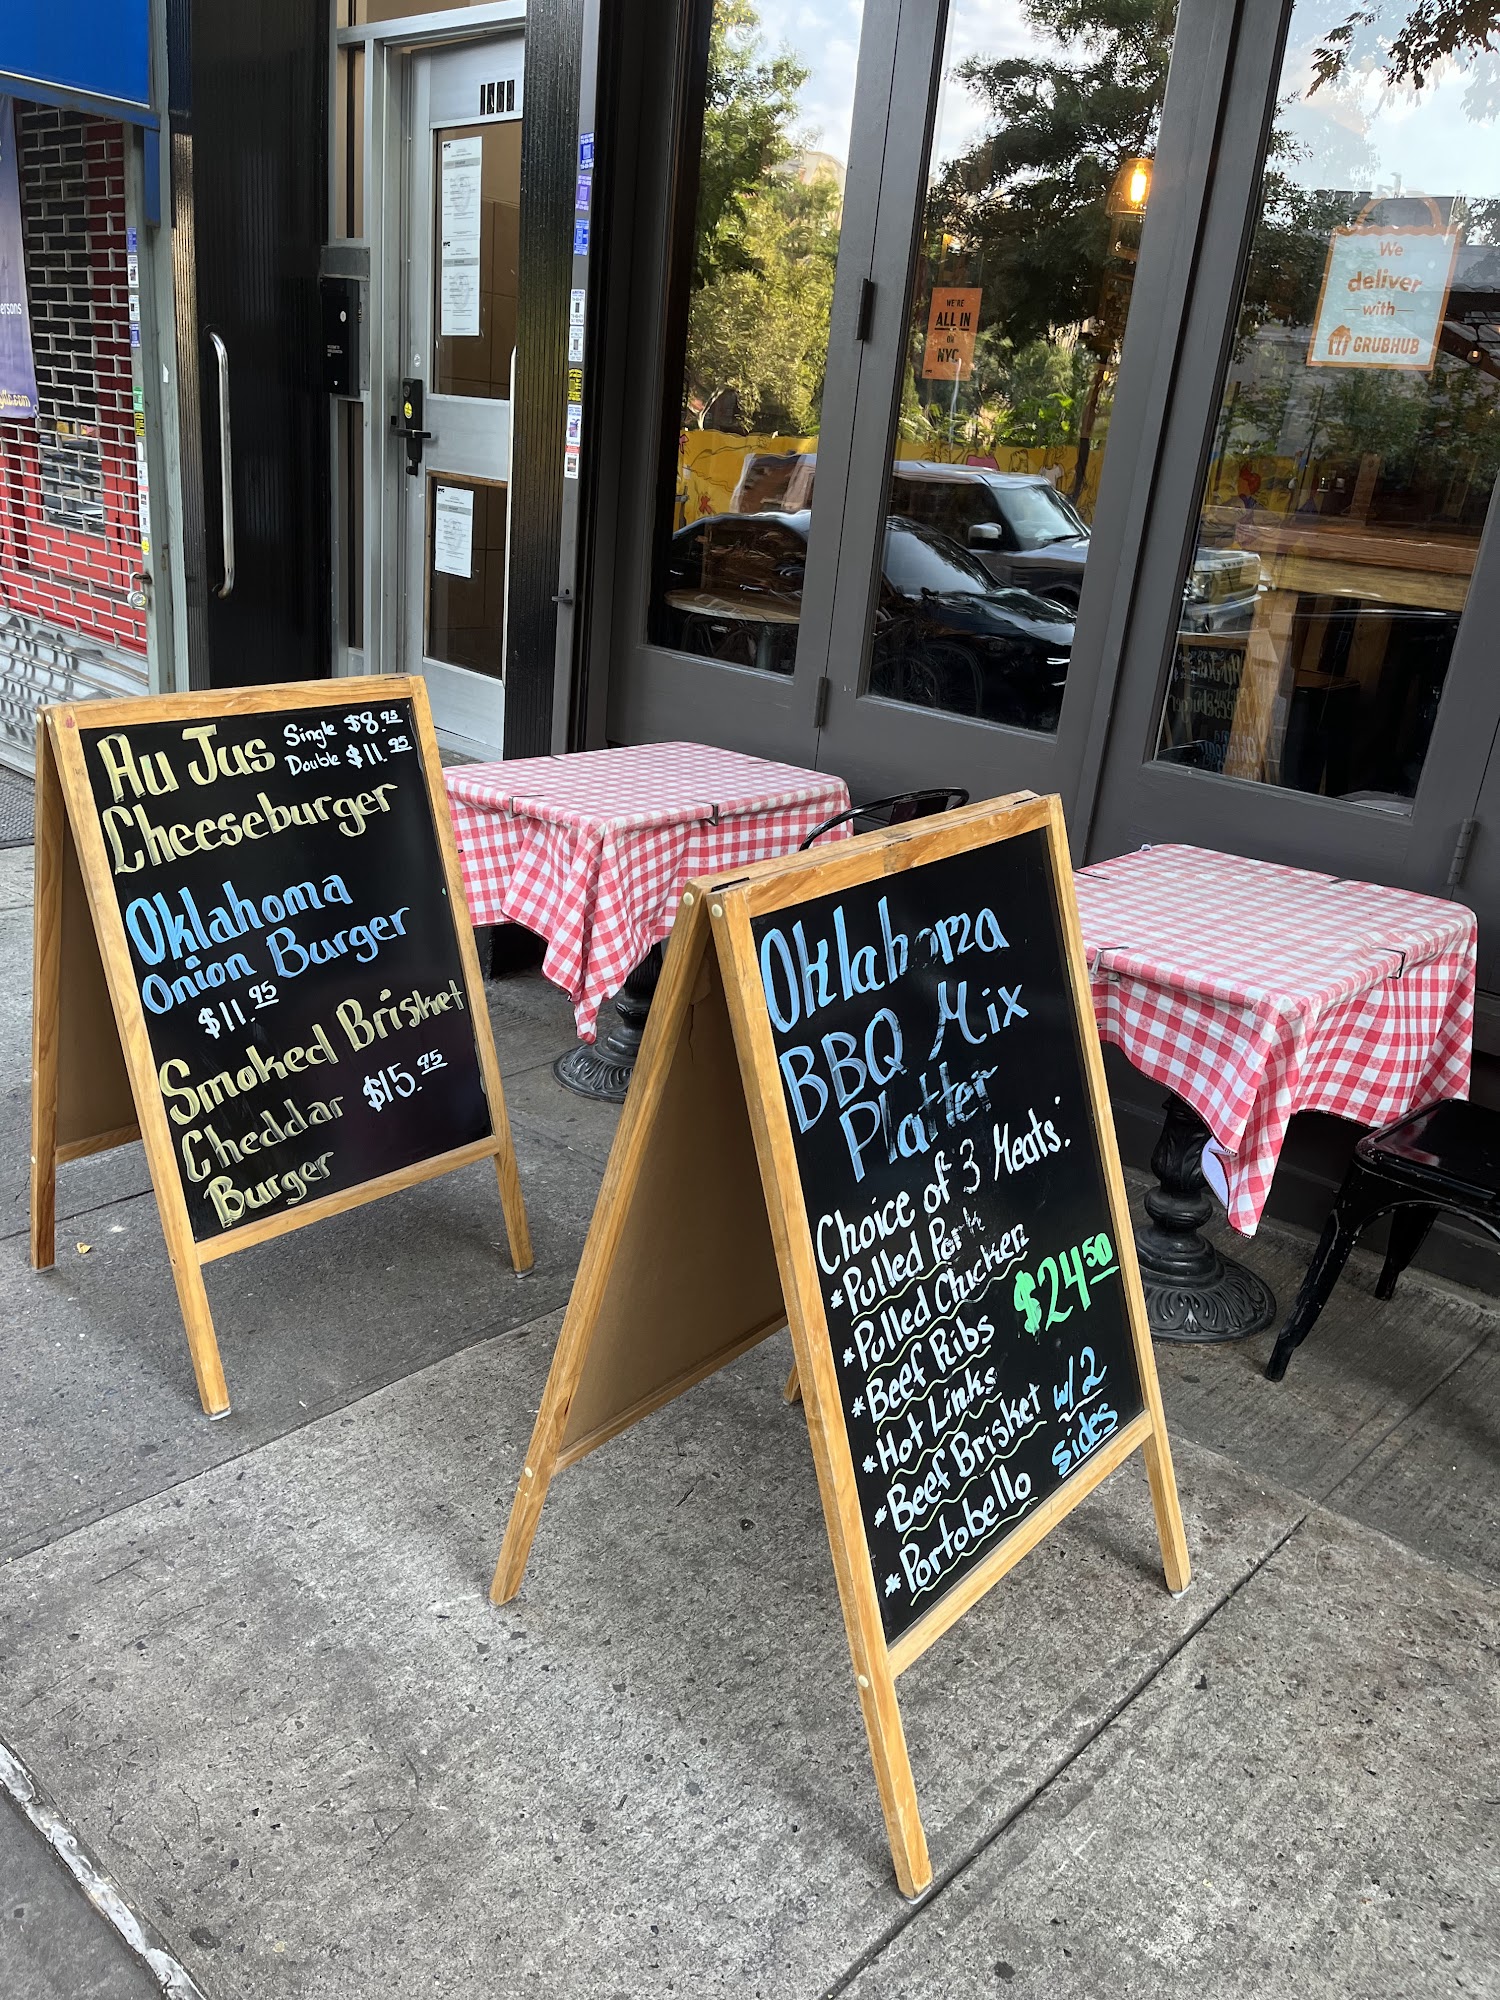 Au Jus
Single $8.95
Double $11.95
Cheeseburger
Oklahoma
Onion Burger
$11.95
Smoked Brisket
Cheddar $15.95
Burger
Oklahoma
BBQ Mix
Platter
Choice of 3 Meats:
*Pulled Pork
*Pulled Chicken
$24.50
*Beef Ribs
*Hot Links
*Beef Brisket
w/2
sides
*Portobello
WE'RE
ALL IN
ON
NYC
We
deliver
with
GRUBHUB
ersons
NYC